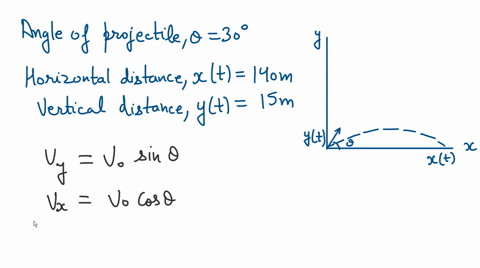 Angle of projectile, θ = 30°
Horizontal distance, x(t) = 140m
Vertical distance, y(t) = 15m
V_y = V₀ sin θ
V_x = V₀ cos θ
y
y(t)
θ
x(t)
x